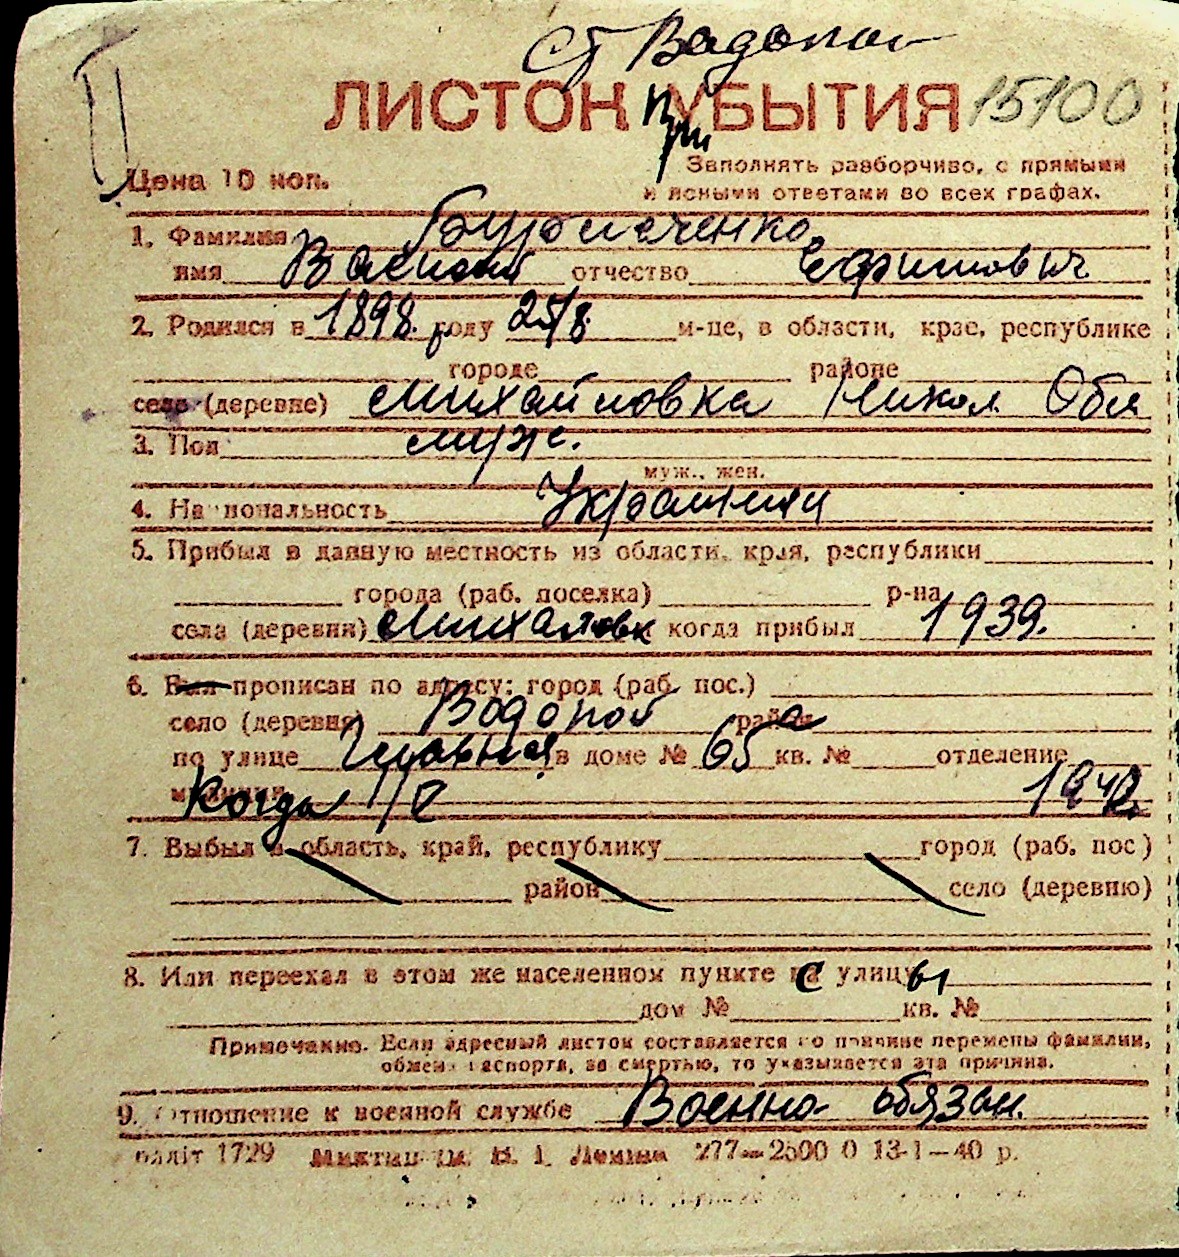 ст Водопой
ЛИСТОК При УБЫТИЯ 15100
Цена 10 коп.
Заполнять разборчиво, с прямыми
и ясными ответами во всех графах.
1. Фамилия Бурлаченко
имя Василий отчество Ефимович
2. Родился в 1898 году 25/8 м-це, в области, крае, республике
городе районе
село (деревне) Михайловка Никол Обл
3. Пол муж.
муж., жен.
4. Национальность Украинец
5. Прибыл в данную местность из области, края, республики
города (раб. поселка) р-на
села (деревни) Михаловк когда прибыл 1939.
6. Был прописан по адресу: город (раб. пос.)
село (деревня) Водопой район
по улице Главная в доме № 65 а кв. № отделение
милиции Когда 1942.
7. Выбыл в область, край, республику город (раб. пос)
район село (деревню)
8. Или переехал в этом же населенном пункте с улицы
дом № кв. №
Примечание. Если адресный листок составляется по причине перемены фамилии,
обмена паспорта, за смертью, то указывается эта причина.
9. Отношение к военной службе Военно-обязан.
1729 ім. В. І. Леніна 277—2500 0 13-1—40 р.